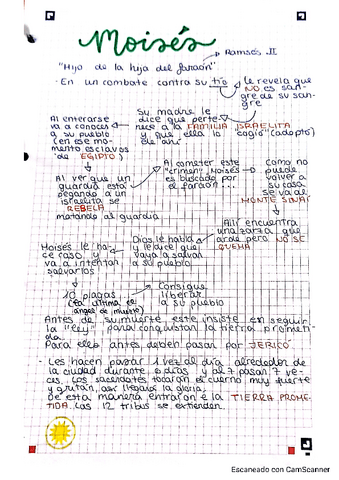 Moisés
Ramsés II
"Hijo de la hija del faraón"
· En un combate contra su tío
le revela que
NO es san-
gre de su san-
gre
Su madre le
dice que perte-
nece a la FAMILIA ISRAELITA
y que ella lo "cogió" (adoptó)
de ahí
Al enterarse
va a conocer
a su pueblo
(en ese mo-
mento esclavos
de EGIPTO)
Al ver que un
guardia esta
pegando a un
israelita se
REBELA
matando al guardia
Al cometer este
"crimen" Moisés
es buscado por
el faraón...
como no
puede
volver a
su casa
se va al
MONTE SINAÍ
Allí encuentra
una zarza que
arde pero NO SE
QUEMA
Dios le habla
y le dice que
vaya a salvar
a su pueblo
Moisés le ha-
ce caso y
va a intentar
salvarlos
10 plagas
(la última el
ángel de muerte)
Consigue
liberar
a su pueblo
Antes de su muerte este insiste en seguir
la "ley" para conquistar la tierra prometi-
da.
Para ello antes deben pasar por JERICÓ
- Les hacen pasar 1 vez al día alrededor de
la ciudad durante 6 días y al 7 pasan 7 ve-
ces. Los sacerdotes tocaron el cuerno muy fuerte
y gritan, así llegaría la gloria.
De esta manera entraron e la TIERRA PROME-
TIDA. Las 12 tribus se extienden.
Escaneado con CamScanner